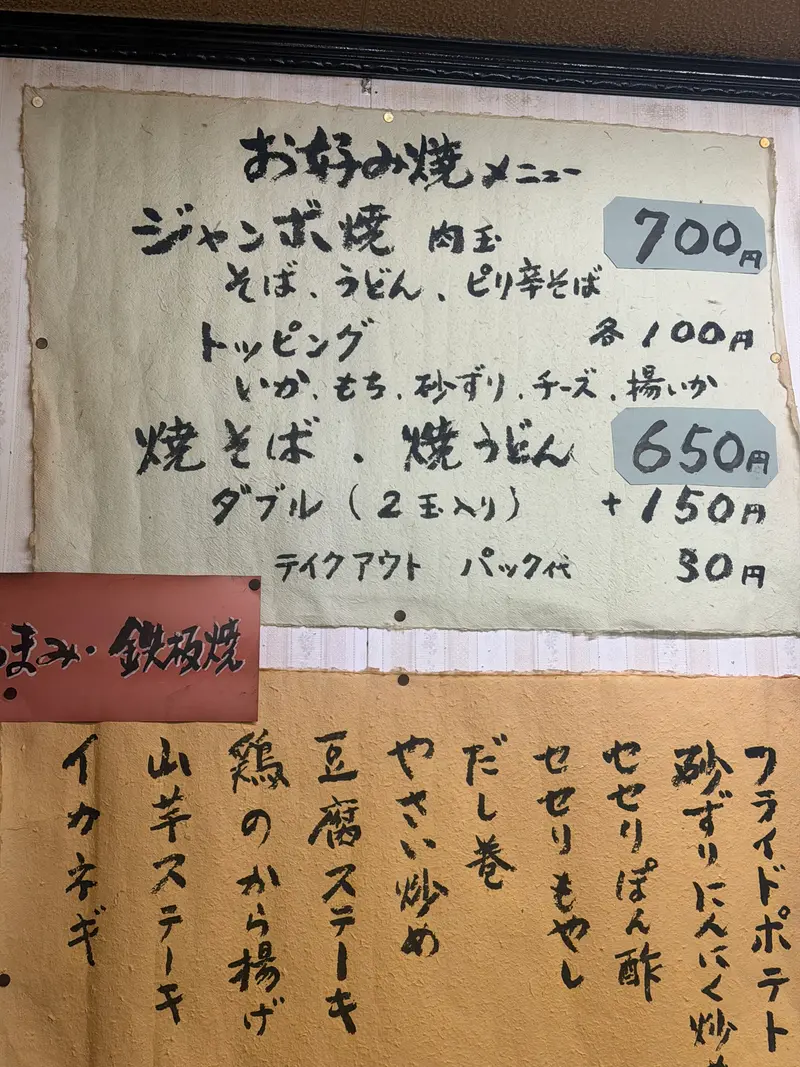 お好み焼メニュー
ジャンボ焼 肉玉 700円
そば、うどん、ピリ辛そば
トッピング 各100円
いか、もち、砂ずり、チーズ、揚いか
焼そば、焼うどん 650円
ダブル(2玉入り) +150円
テイクアウト パック代 30円
まみ・鉄板焼
フライドポテト
砂ずりにんにく炒め
セセリぽん酢
セセリもやし
だし巻
やさい炒め
豆腐ステーキ
鶏のから揚げ
山芋ステーキ
イカネギ